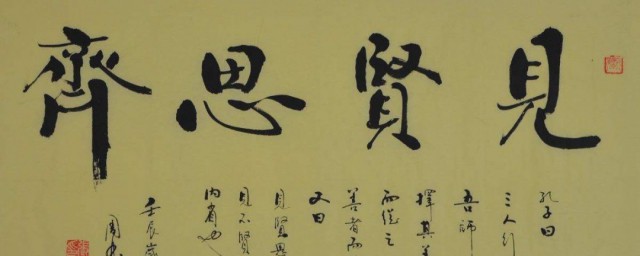 見賢思齊
孔子曰
三人行
吾師
擇其善
而從之
善者而
又曰
見賢思
見不賢
内省也
壬辰歲
周